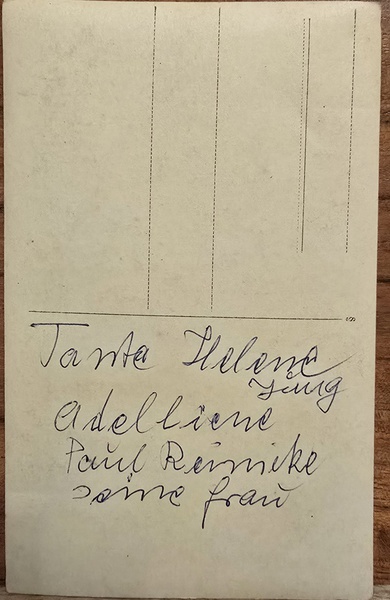 Tante Helene
Jung
Adelliene
Paul Reinicke
seine frau